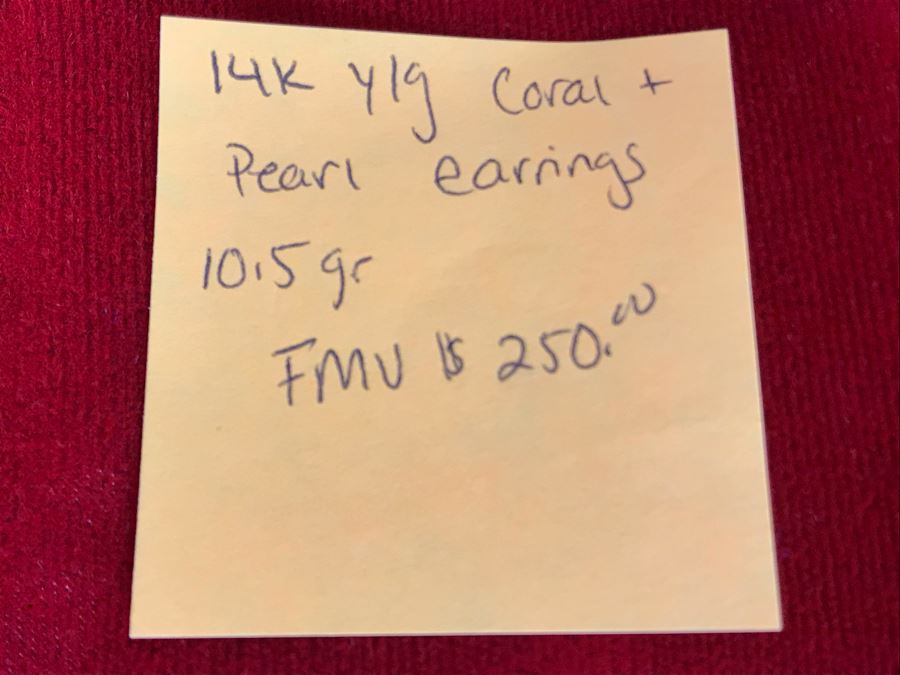 14K y/g Coral +
Pearl earrings
10.5 gr
FMV $ 250.00